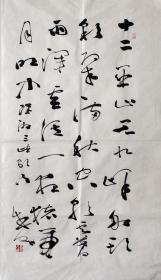 十二巫山見九峰船頭
彩翠滿秋空朝雲暮
雨渾虛語一夜猿啼明
月中 陸游三峽歌